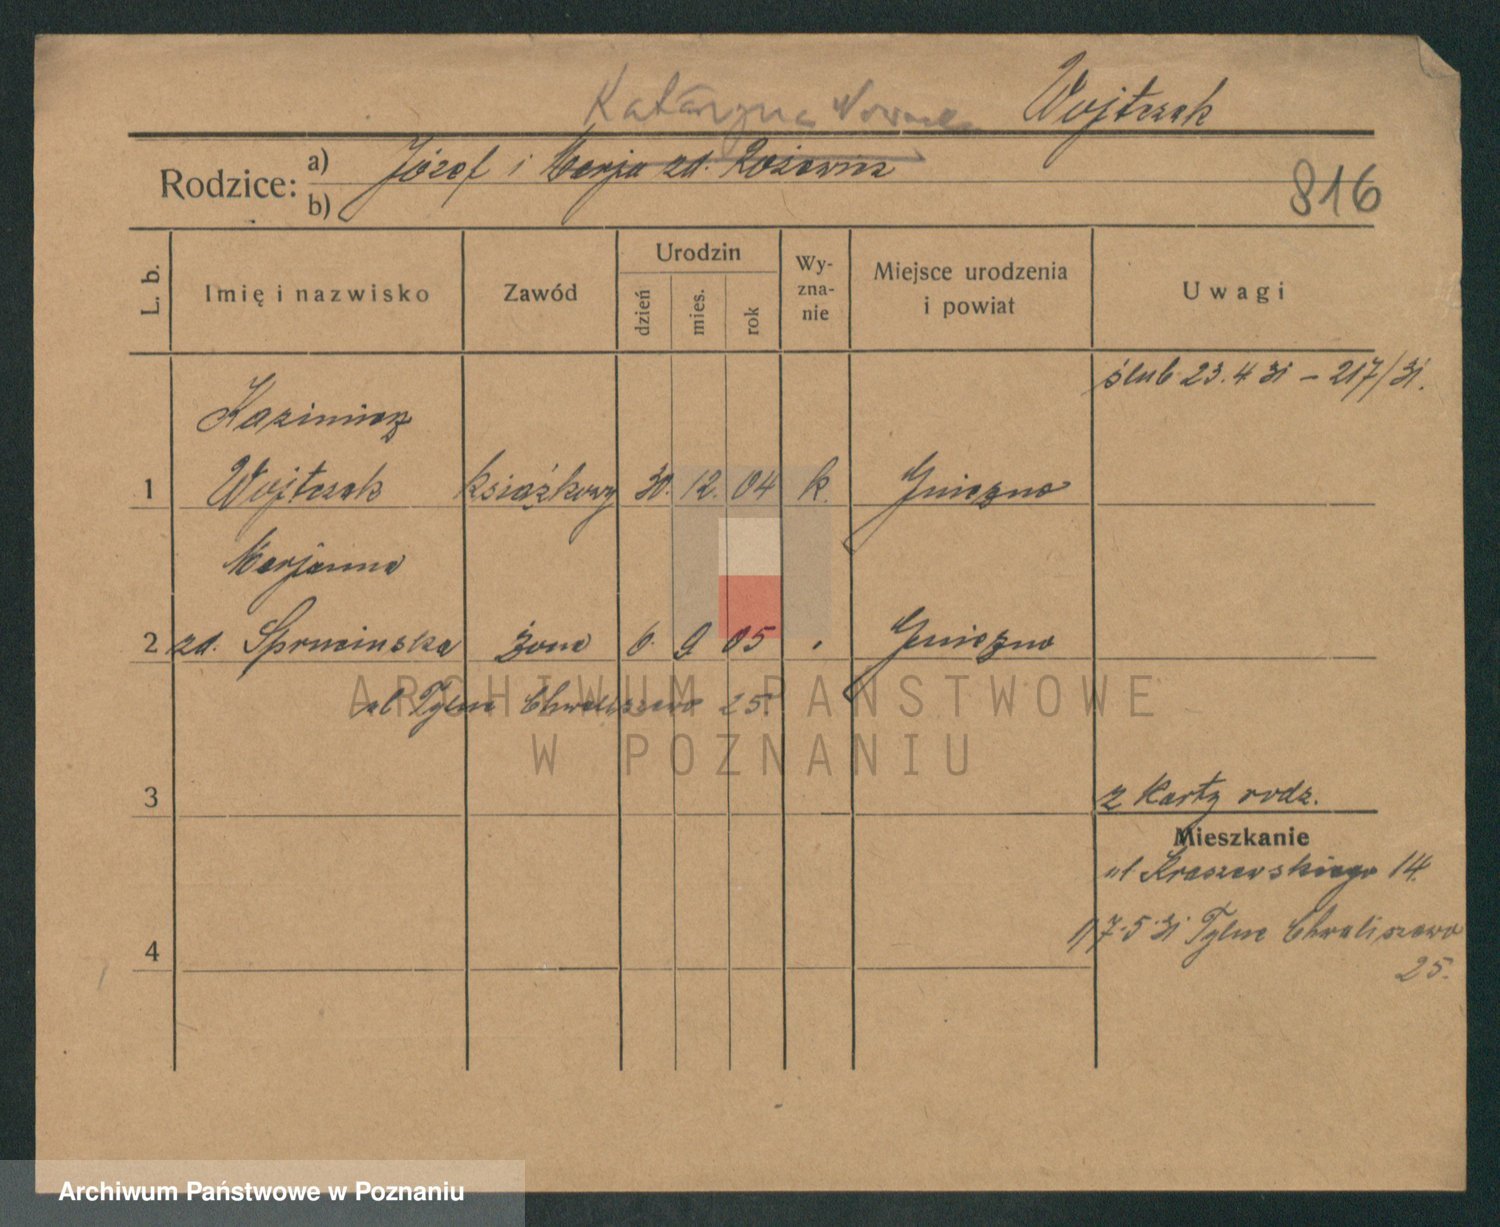 Katarzyna Nowak
Wojtczak
Rodzice: a) Józef i Marja zd. Rożewicz
b)
816
L. b. Imię i nazwisko Zawód Urodzin dzień mies. rok Wyznanie Miejsce urodzenia i powiat Uwagi
ślub 23.4 31 – 217/31.
Kazimierz
1 Wojtczak książkowy 30. 12. 04 k. Gniezno
Marjanna
2 zd. Sprucinska żona 6. 9. 05 Gniezno
ul Tylne Chwaliszewo 25.
ARCHIWUM PAŃSTWOWE
W POZNANIU
3 z Karty rodz.
Mieszkanie
ul Kraszewskiego 14.
17.5.31 Tylne Chwaliszewo
4
25.
Archiwum Państwowe w Poznaniu